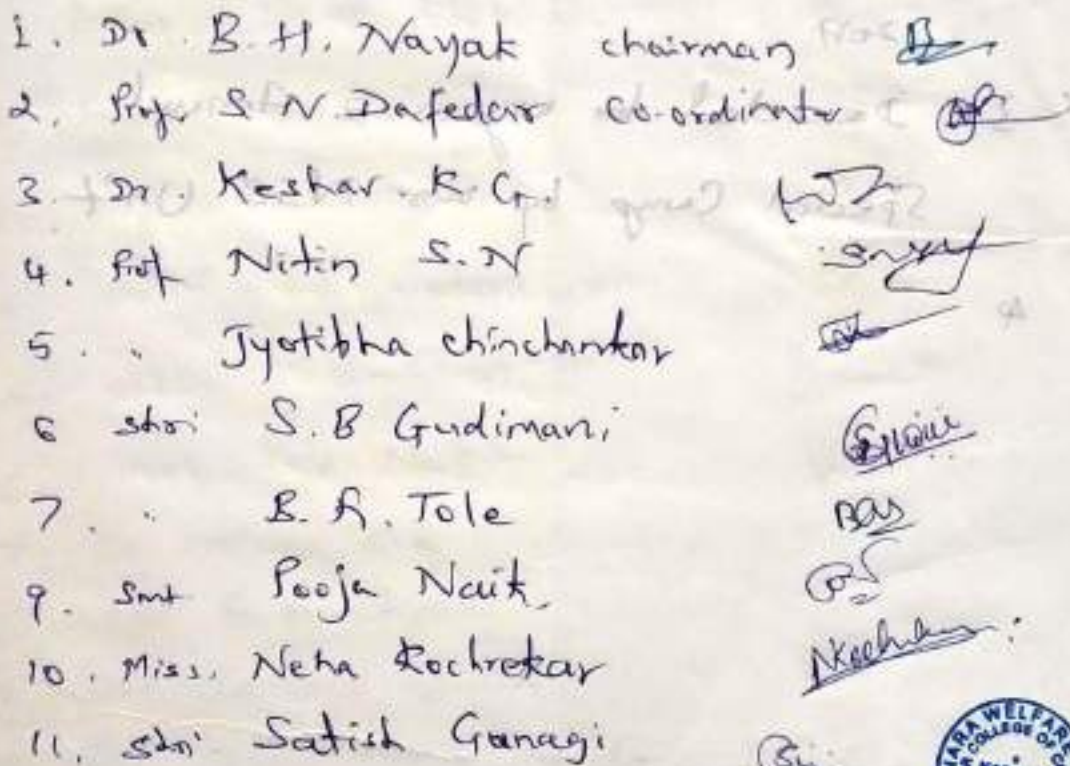 1. Dr. B.H. Nayak chairman
2. Prof. S.N. Dafedar Co-ordinator
3. Dr. Keshav. K.G.
4. Prof Nitin S.N
5. " Jyotibha chinchankar
6 shri S.B Gudimani
7. " B.A. Tole
9. Smt Pooja Naik.
10. Miss. Neha Kochrekar
11. Shri Satish Ganagi
ARA WELFARE
COLLEGE OF